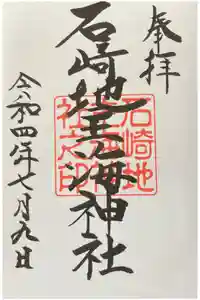 奉拝
石崎地主海神社
石崎地
社之印
令和四年七月九日